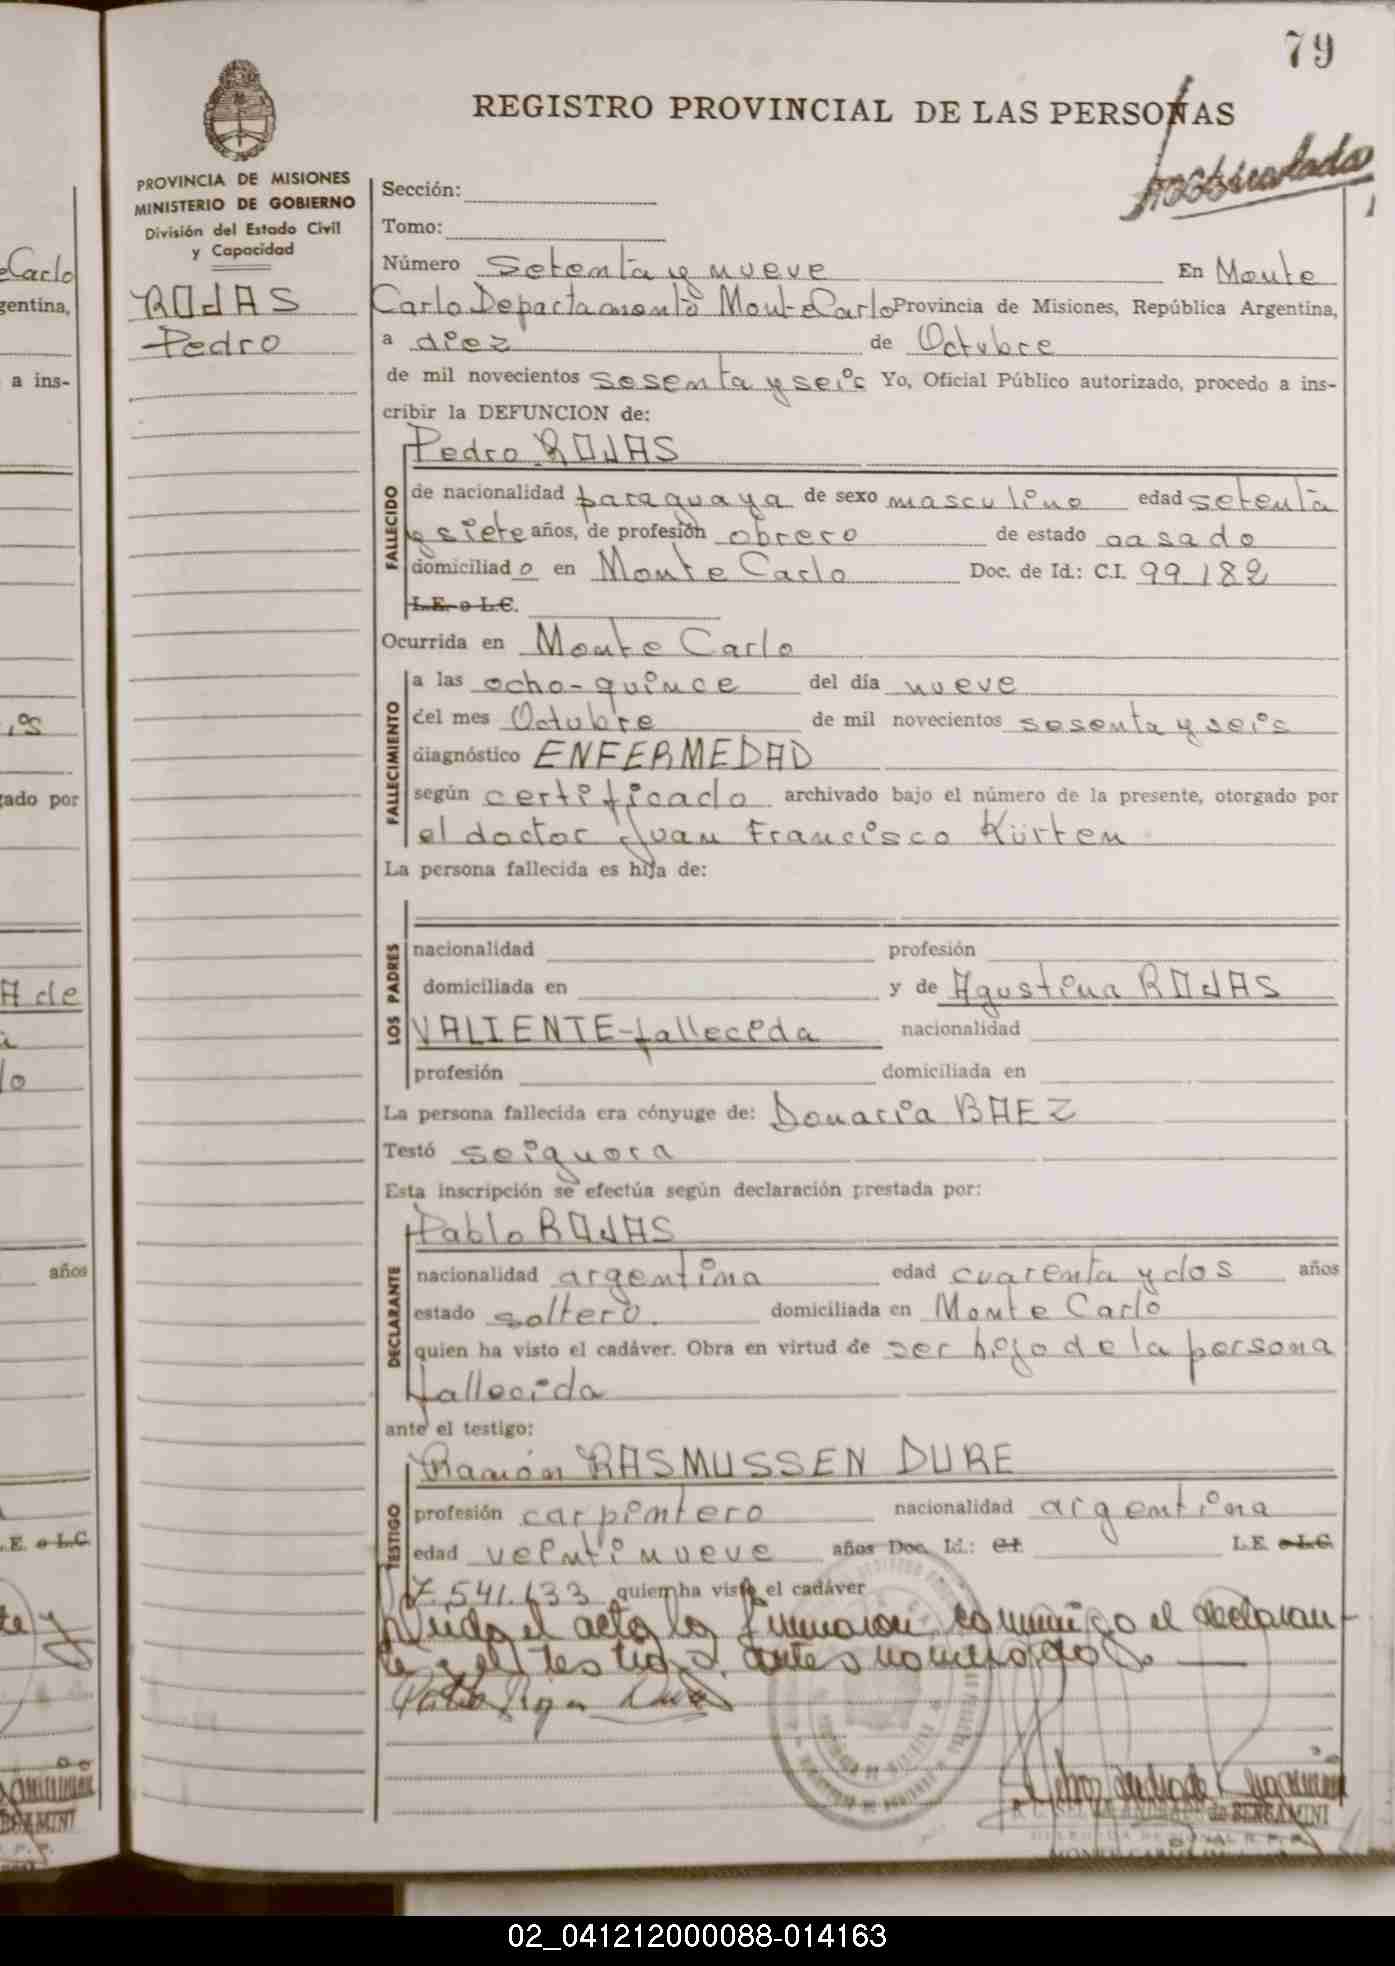 79
REGISTRO PROVINCIAL DE LAS PERSONAS
PROVINCIA DE MISIONES
MINISTERIO DE GOBIERNO
División del Estado Civil
y Capacidad
ROJAS
Pedro
Sección:
Tomo:
Número Setenta y nueve En Monte
Carlo Departamento Monte Carlo Provincia de Misiones, República Argentina,
a diez de Octubre
de mil novecientos sesenta y seis Yo, Oficial Público autorizado, procedo a ins-
cribir la DEFUNCION de:
Pedro ROJAS
FALLECIDO
de nacionalidad paraguaya de sexo masculino edad setenta
y siete años, de profesión obrero de estado casado
domiciliado en Monte Carlo Doc. de Id.: C.I. 99.182
L.E. o L.C.
Ocurrida en Monte Carlo
FALLECIMIENTO
a las ocho-quince del día nueve
del mes Octubre de mil novecientos sesenta y seis
diagnóstico ENFERMEDAD
según certificado archivado bajo el número de la presente, otorgado por
el doctor Juan Francisco Kürten
La persona fallecida es hija de:
LOS PADRES
nacionalidad profesión
domiciliada en y de Agustina ROJAS
VALIENTE-fallecida nacionalidad
profesión domiciliada en
La persona fallecida era cónyuge de: Donaria BAEZ
Testó seignora
Esta inscripción se efectúa según declaración prestada por:
Pablo ROJAS
DECLARANTE
nacionalidad argentina edad cuarenta y dos años
estado soltero. domiciliada en Monte Carlo
quien ha visto el cadáver. Obra en virtud de ser hijo de la persona
fallecida
ante el testigo:
Ramón RASMUSSEN DURE
TESTIGO
profesión carpintero nacionalidad argentina
edad veintinueve años Doc. Id.: CI. L.E. o L.C.
7.541.633 quien ha visto el cadáver
el acto lo firmaron conmigo el declaran-
te y el testigo antes nombrados.
de BERGAMINI
Carlo
gentina,
a ins-
is
gado por
A de
lo
años
L.E. o L.C.
BERGAMINI
02_041212000088-014163